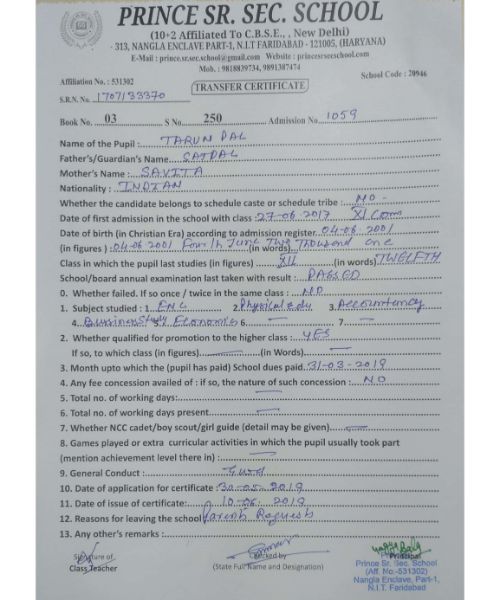 PRINCE SR. SEC. SCHOOL
(10+2 Affiliated To C.B.S.E., New Delhi)
313, NANGLA ENCLAVE PART-1, N.I.T FARIDABAD - 121005, (HARYANA)
E-Mail : prince.sr.sec.school@gmail.com Website : princesrsecschool.com
Mob. : 9818839734, 9891387474
Affiliation No. : 531302 School Code : 20946
TRANSFER CERTIFICATE
S.R.N. No. 1707133370
Book No. 03 S No. 250 Admission No. 1059
Name of the Pupil : TARUN PAL
Father's/Guardian's Name SATPAL
Mother's Name : SAVITA
Nationality : INDIAN
Whether the candidate belongs to schedule caste or schedule tribe : NO -
Date of first admission in the school with class : 27-06-2017 XI Com
Date of birth (in Christian Era) according to admission register 04-06-2001
(in figures) : 04-06-2001 (in words) Fourth June Two Thousand one
Class in which the pupil last studies (in figures) XII (in words) TWELFTH
School/board annual examination last taken with result : PASSED
0. Whether failed. If so once / twice in the same class : NO
1. Subject studied : 1. ENG 2. Physical edu 3. Accountancy
4. Bussiness Study 5. Economics 6. — 7. —
2. Whether qualified for promotion to the higher class : YES
If so, to which class (in figures) — (in Words) —
3. Month upto which the (pupil has paid) School dues paid. 31-03-2019
4. Any fee concession availed of : if so, the nature of such concession : NO
5. Total no. of working days: —
6. Total no. of working days present —
7. Whether NCC cadet/boy scout/girl guide (detail may be given) —
8. Games played or extra curricular activities in which the pupil usually took part
(mention achievement level there in) : —
9. General Conduct : Good
10. Date of application for certificate : 30-05-2019
11. Date of issue of certificate: 10-06-2019
12. Reasons for leaving the school Parents Request
13. Any other's remarks :
Signature of Checked by Principal
Class Teacher (State Full Name and Designation) Prince Sr. Sec. School
(Aff. No.-531302)
Nangla Enclave, Part-1,
N.I.T. Faridabad